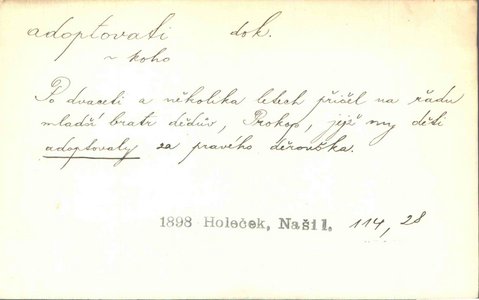 adoptovati dok.
~ koho
Po dvaceti a několika letech přišel na řadu
mladší bratr dědův, Prokop, jejž my děti
adoptovaly za pravého dědouška.
1898 Holeček, Naši I. 114, 28